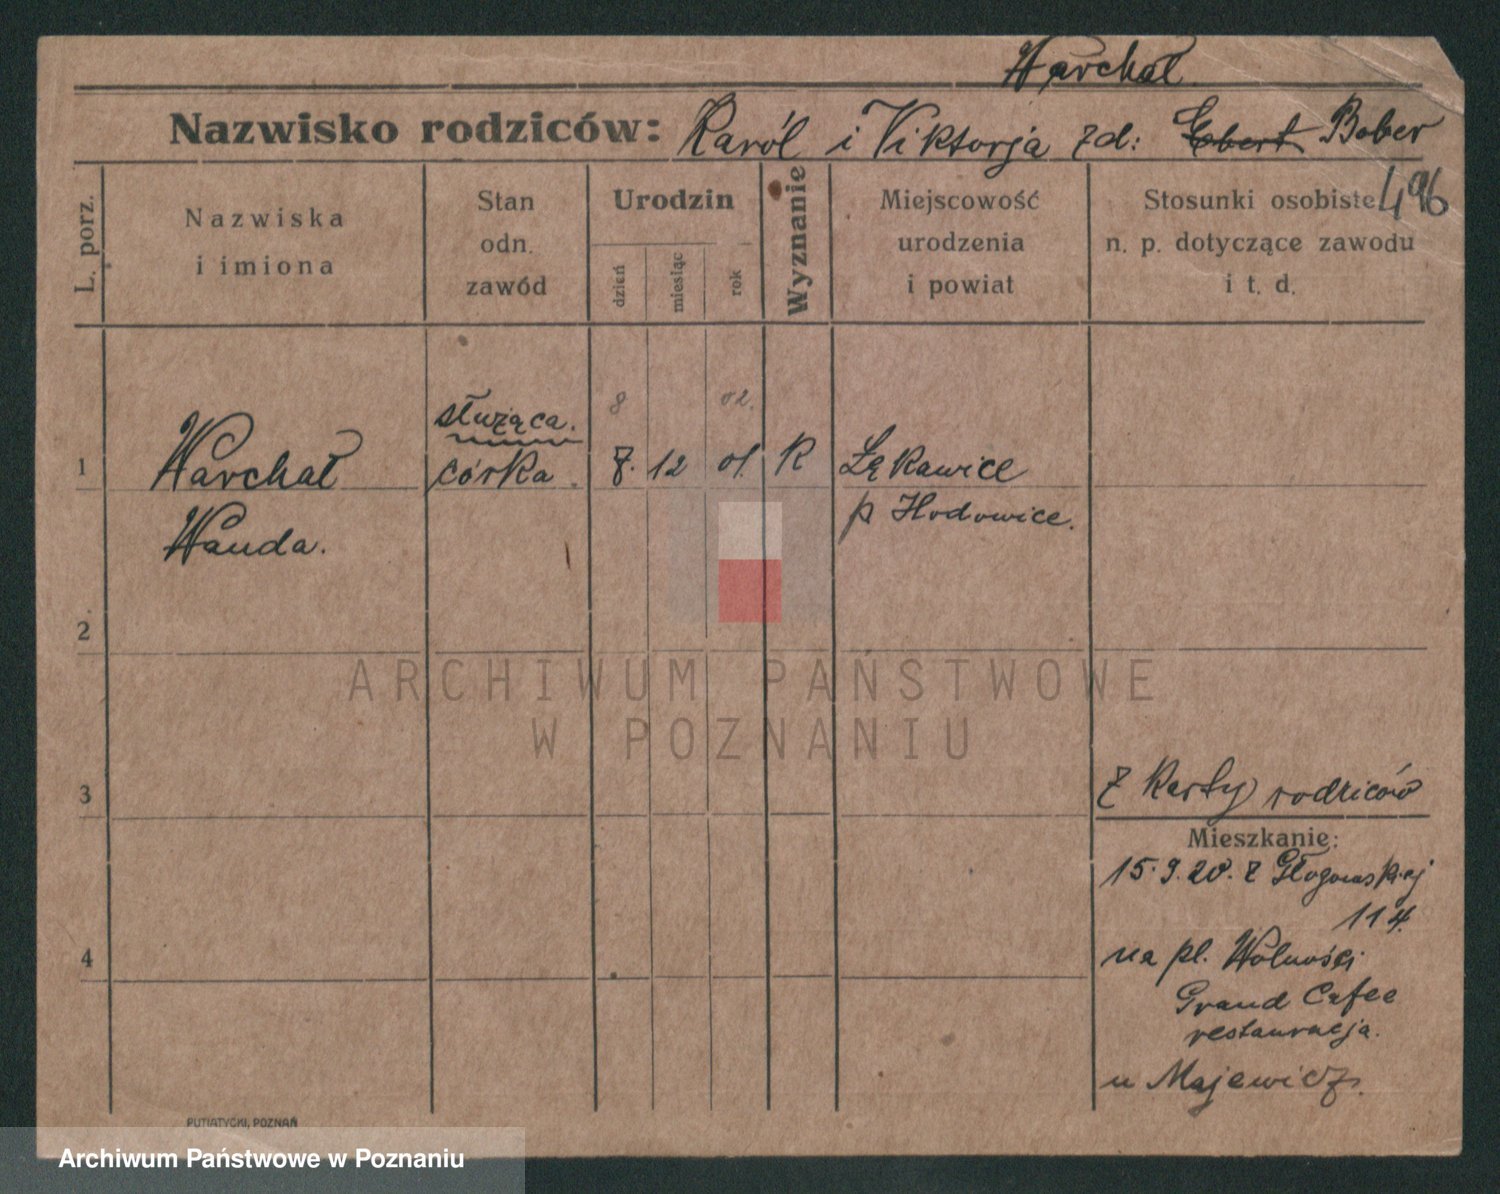 Warchał.
Nazwisko rodziców: Karól i Viktorja zd: Ebert Bober
496
L. porz.
Nazwiska
i imiona
Stan
odn.
zawód
Urodzin
dzień
miesiąc
rok
Wyznanie
Miejscowość
urodzenia
i powiat
Stosunki osobiste
n. p. dotyczące zawodu
i t. d.
służąca. 8 02.
1 Warchał córka. 12 01. K Łękawice
Wanda. p Hodowice.
2
ARCHIWUM PAŃSTWOWE
W POZNANIU
3 z karty rodziców
Mieszkanie:
15.9.20. z Głogowskiej
114.
4 na pl. Wolności
Grand Cafee
restauracja.
u Majewicz.
PUTIATYCKI, POZNAŃ
Archiwum Państwowe w Poznaniu